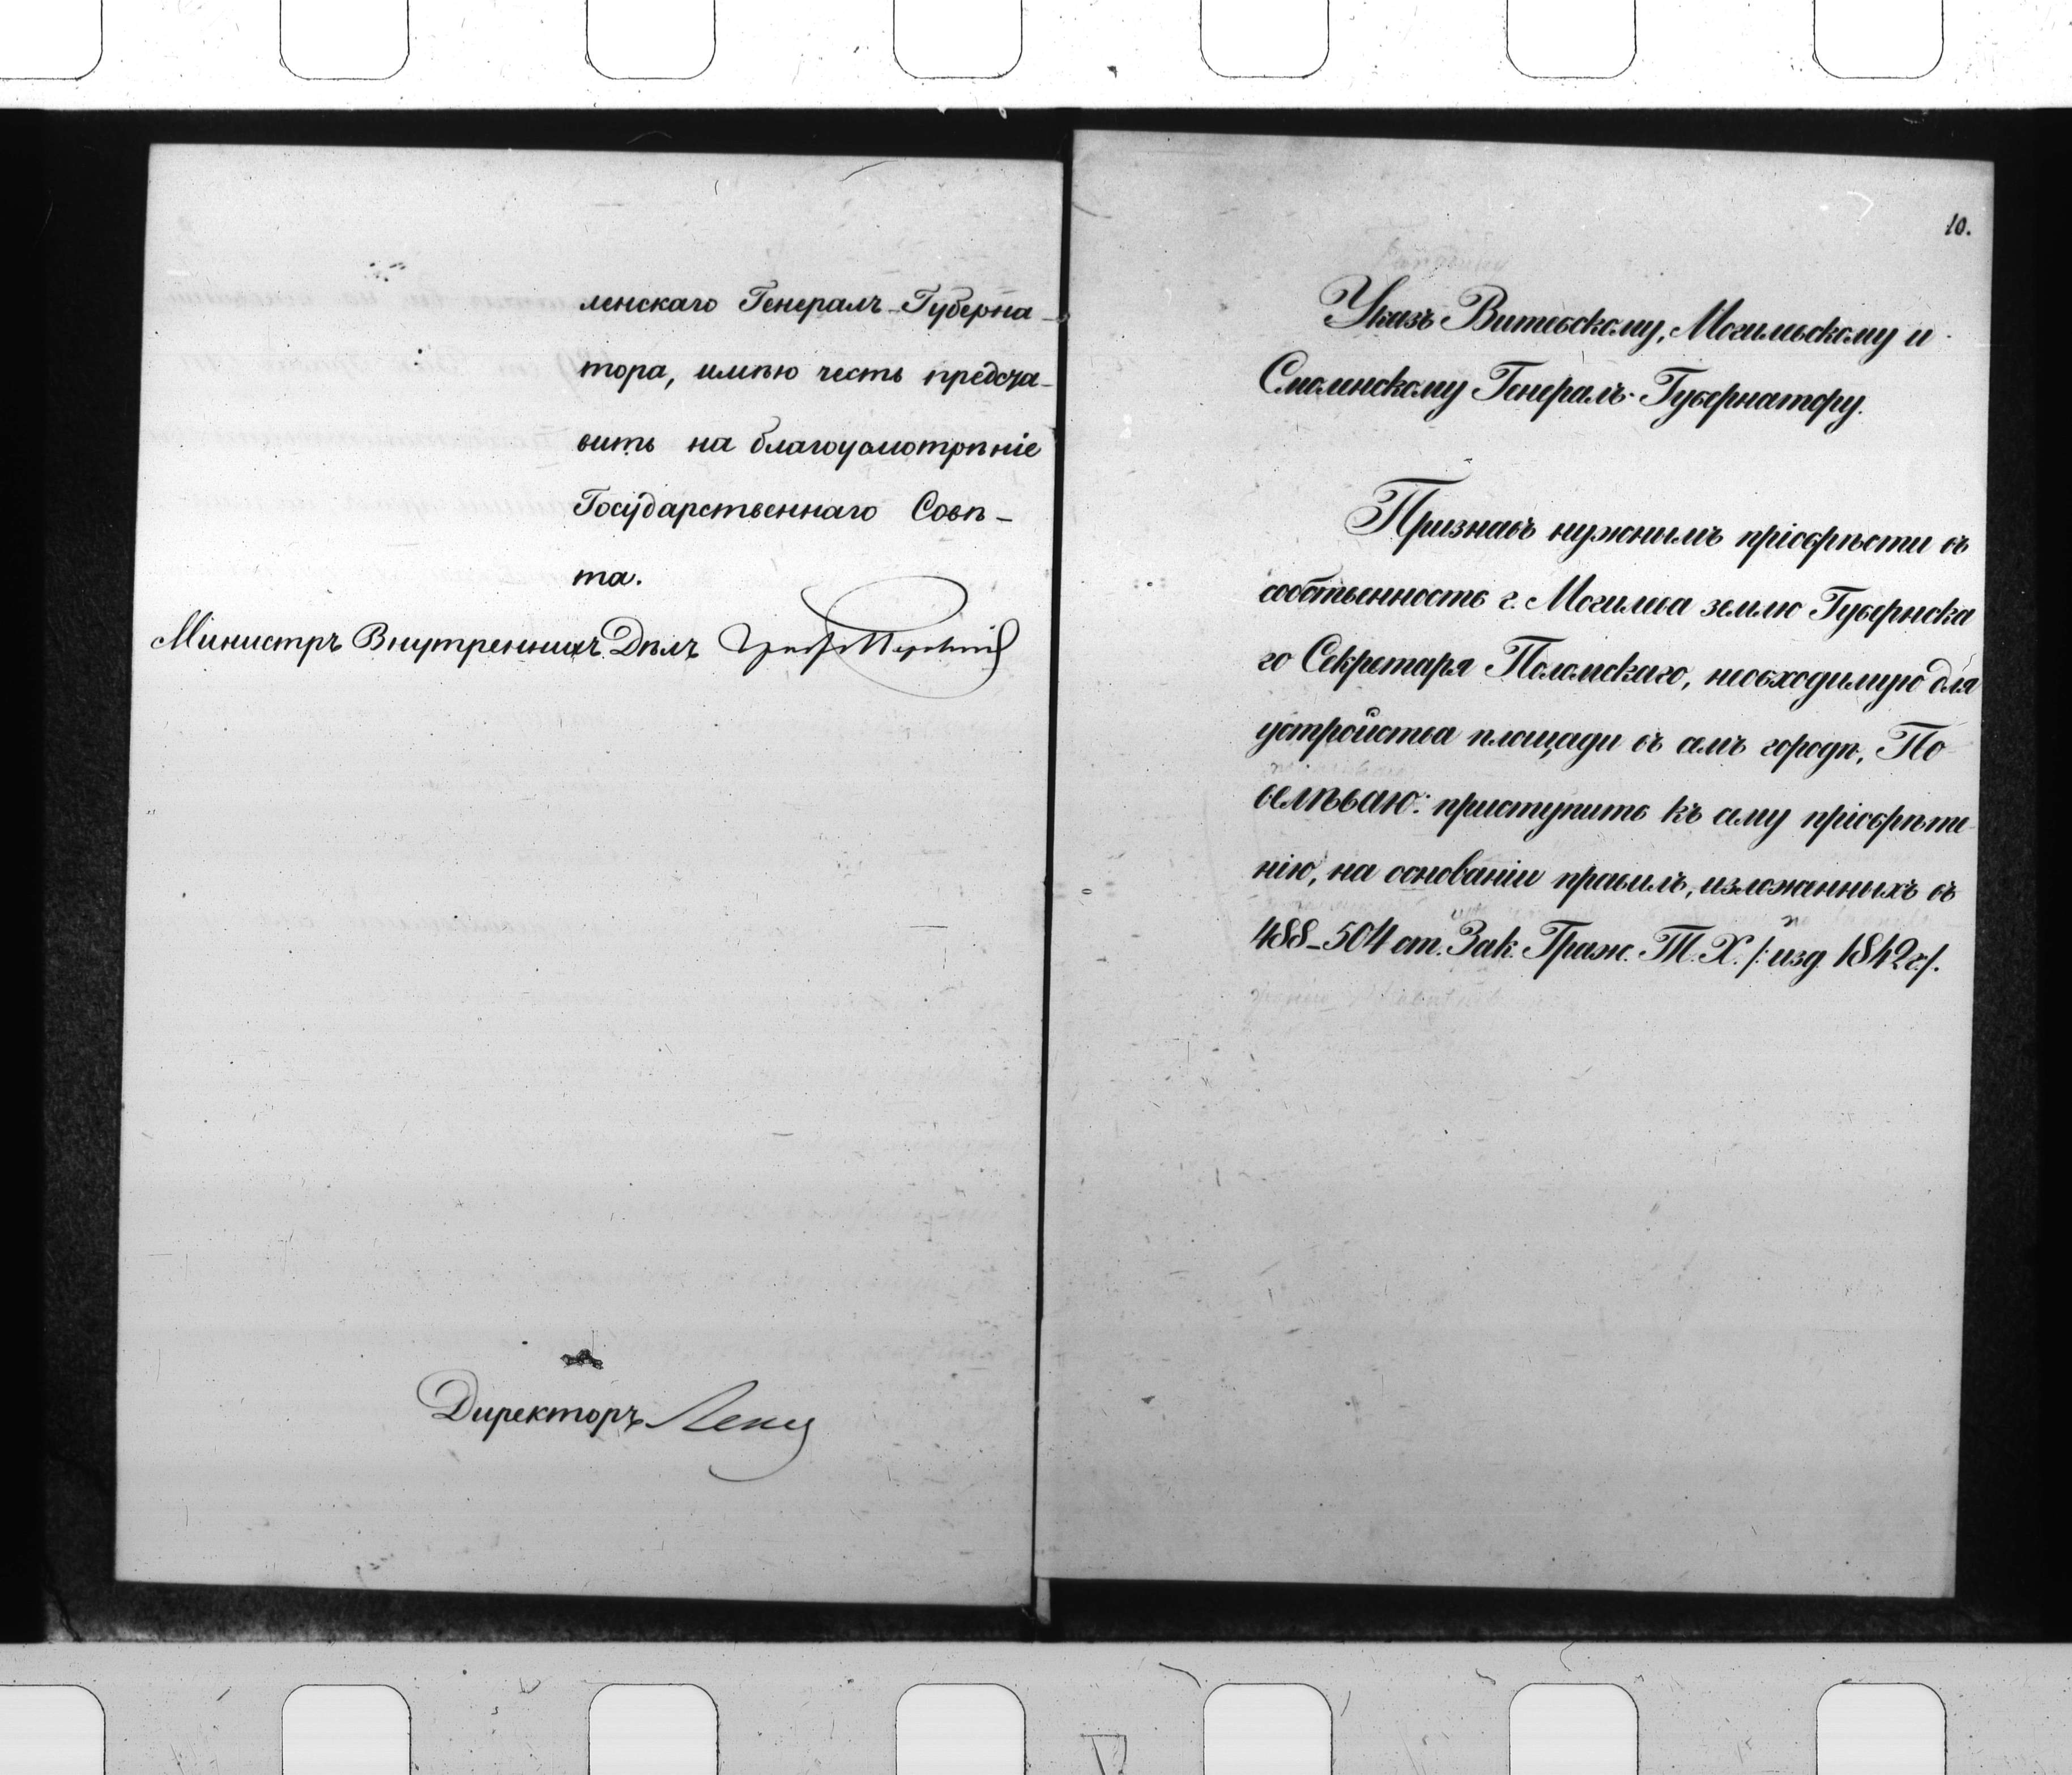 ленскаго Генералъ-Губерна-
тора, имѣю честь предста-
вить на благоусмотрѣніе
Государственнаго Совѣ-
та.
Министръ Внутреннихъ Дѣлъ Графъ Перовскій
Директоръ Ленц
10.
Указъ Витебскому, Могилевскому и
Смоленскому Генералъ-Губернатору.
Признавъ нужнымъ пріобрѣсти въ
собственность г. Могилева землю Губернска
го Секретаря Поломскаго, необходимую для
устройства площади въ семъ городѣ, По-
велѣваю: приступить къ сему пріобрѣте-
нію, на основаніи правилъ, изложенныхъ въ
488-504 ст. Зак. Граж. Т. X. /: изд. 1842 г:/.